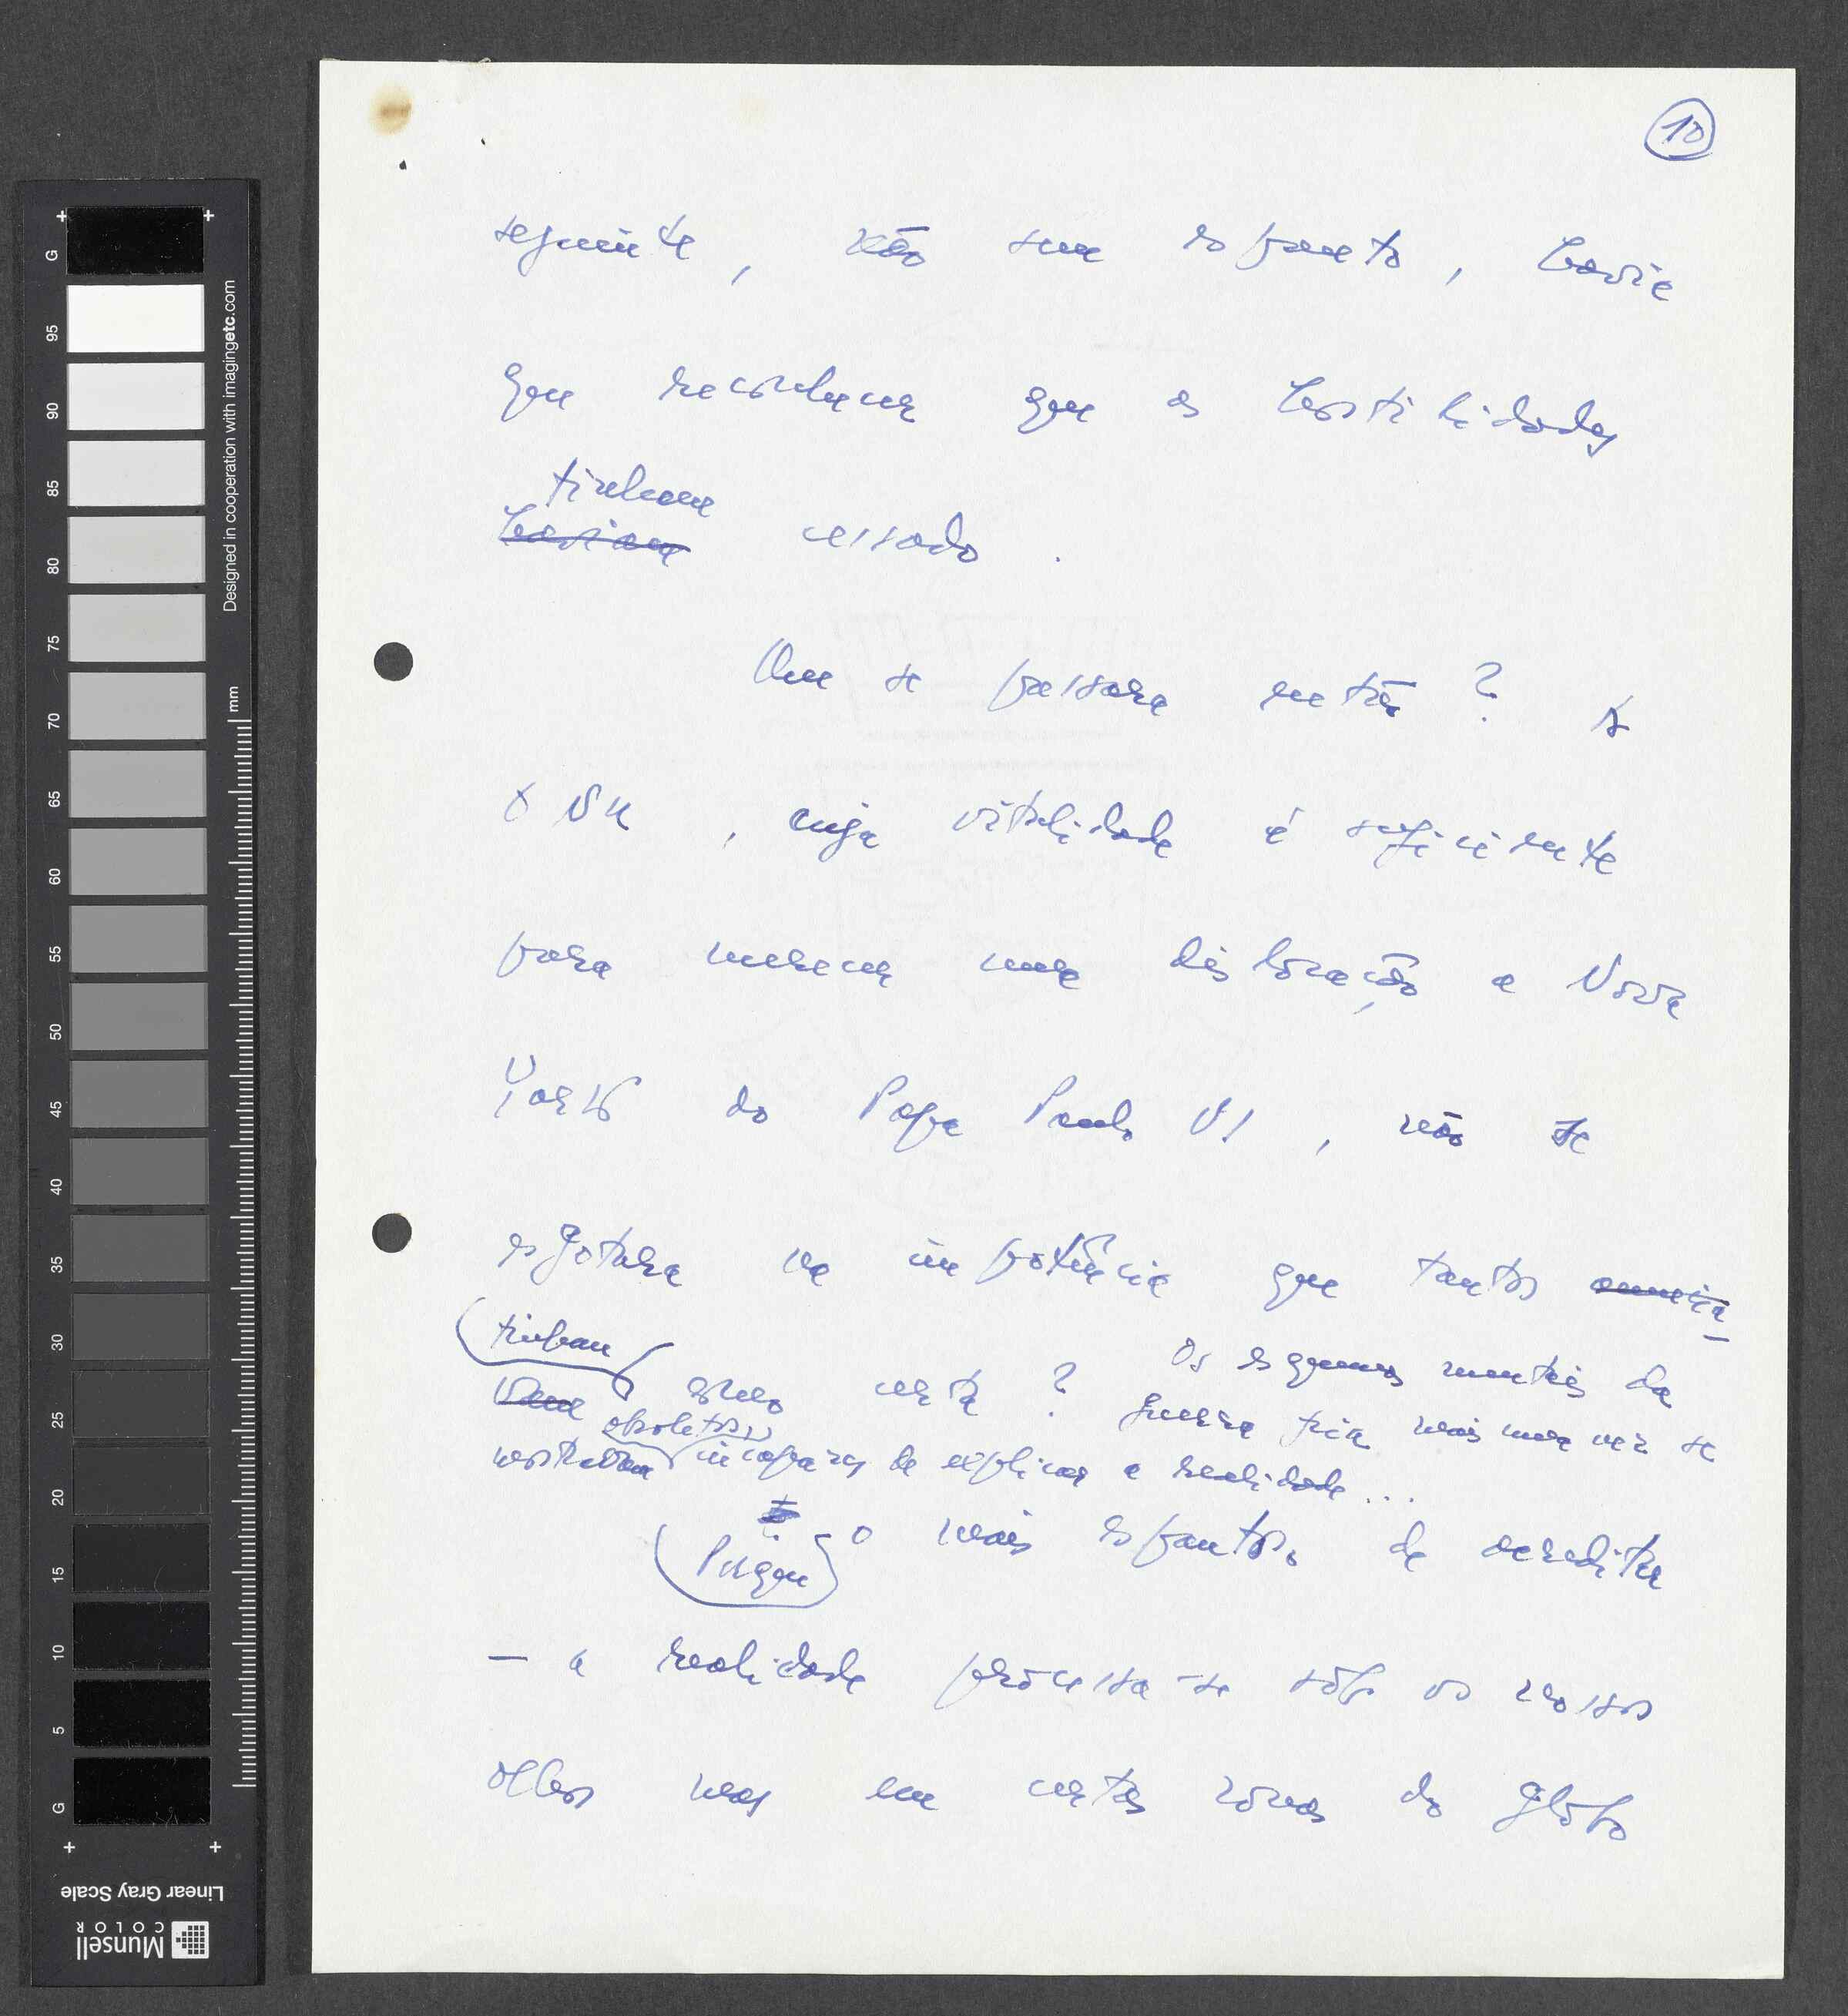 10
seguinte, não sem espanto, havia
que reconhecer que as hostilidades
tinham
haviam cessado.
Que se passara então? A
ONU, cuja vitalidade é suficiente
para merecer uma deslocação a Nova
York do Papa Paulo VI, não se
esgotara na impotência que tantos
tinham
como certa? Os esquemas mentais da
guerra fria mais uma vez se
obsoletos,
mostravam incapazes de explicar a realidade...
Porque o mais espantoso de acreditar
– a realidade processa-se sob os nossos
olhos mas em certas zonas do globo
G
95
90
85
80
75
70
65
60
55
50
45
40
35
30
25
20
15
10
5
G
mm
Designed in cooperation with imagingetc.com
Linear Gray Scale
Munsell
COLOR